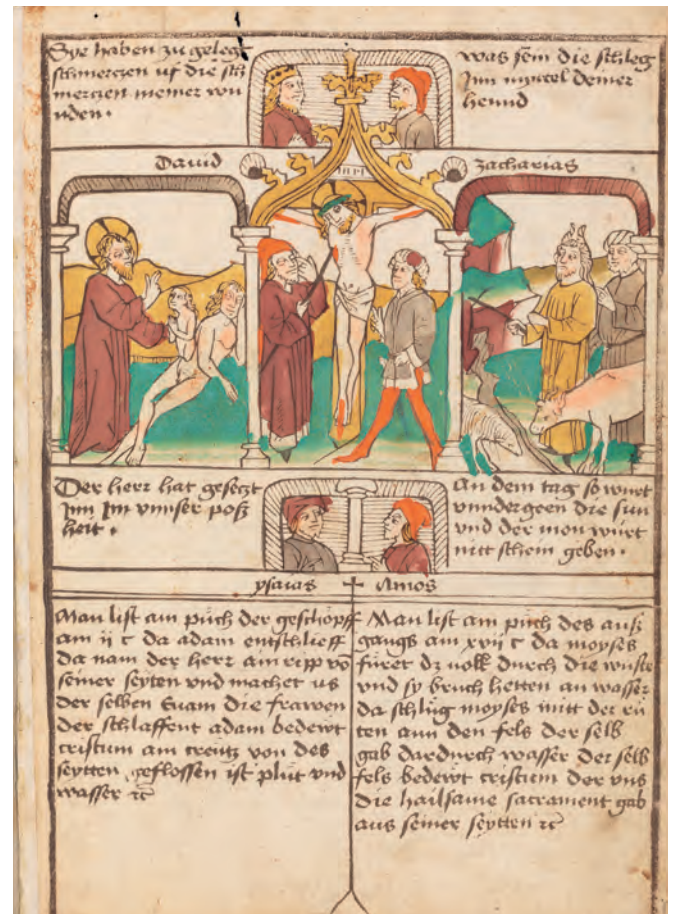 Sye haben zu gelegt
schmerczen uf die sch
merczen meiner wu
nden.
was sein die schleg
Inn myttel deiner
hennd
Dauid
zacharias
INRI
Der herr hat gesetzt
Inn Im vnnser poß
heit.
An dem tag so würt
vnndergeen die sun
vnd der mon würt
nitt schein geben.
ysaias
Amos
Man list am půch der geschöpff
am ij c da adam entschlieff
da nam der herr ain ripp vō
seiner seyten vnd machet us
der selben Euam die frawen
der schlaffent adam bedewt
cristum am creütz von des
seytten geflossen ist plůt vnd
wasser ꝛc̄
Man list am půch des auß
gangs am xvij c da moyses
füret dz volk durch die wüste
vnd sy bruch hetten an wasser
da schlůg moyses mitt der rů
ten ann den fels der selb
gab dardurch wasser Der selb
fels bedewt cristum der vns
die hailsame sacrament gab
aus seiner seytten ꝛc̄